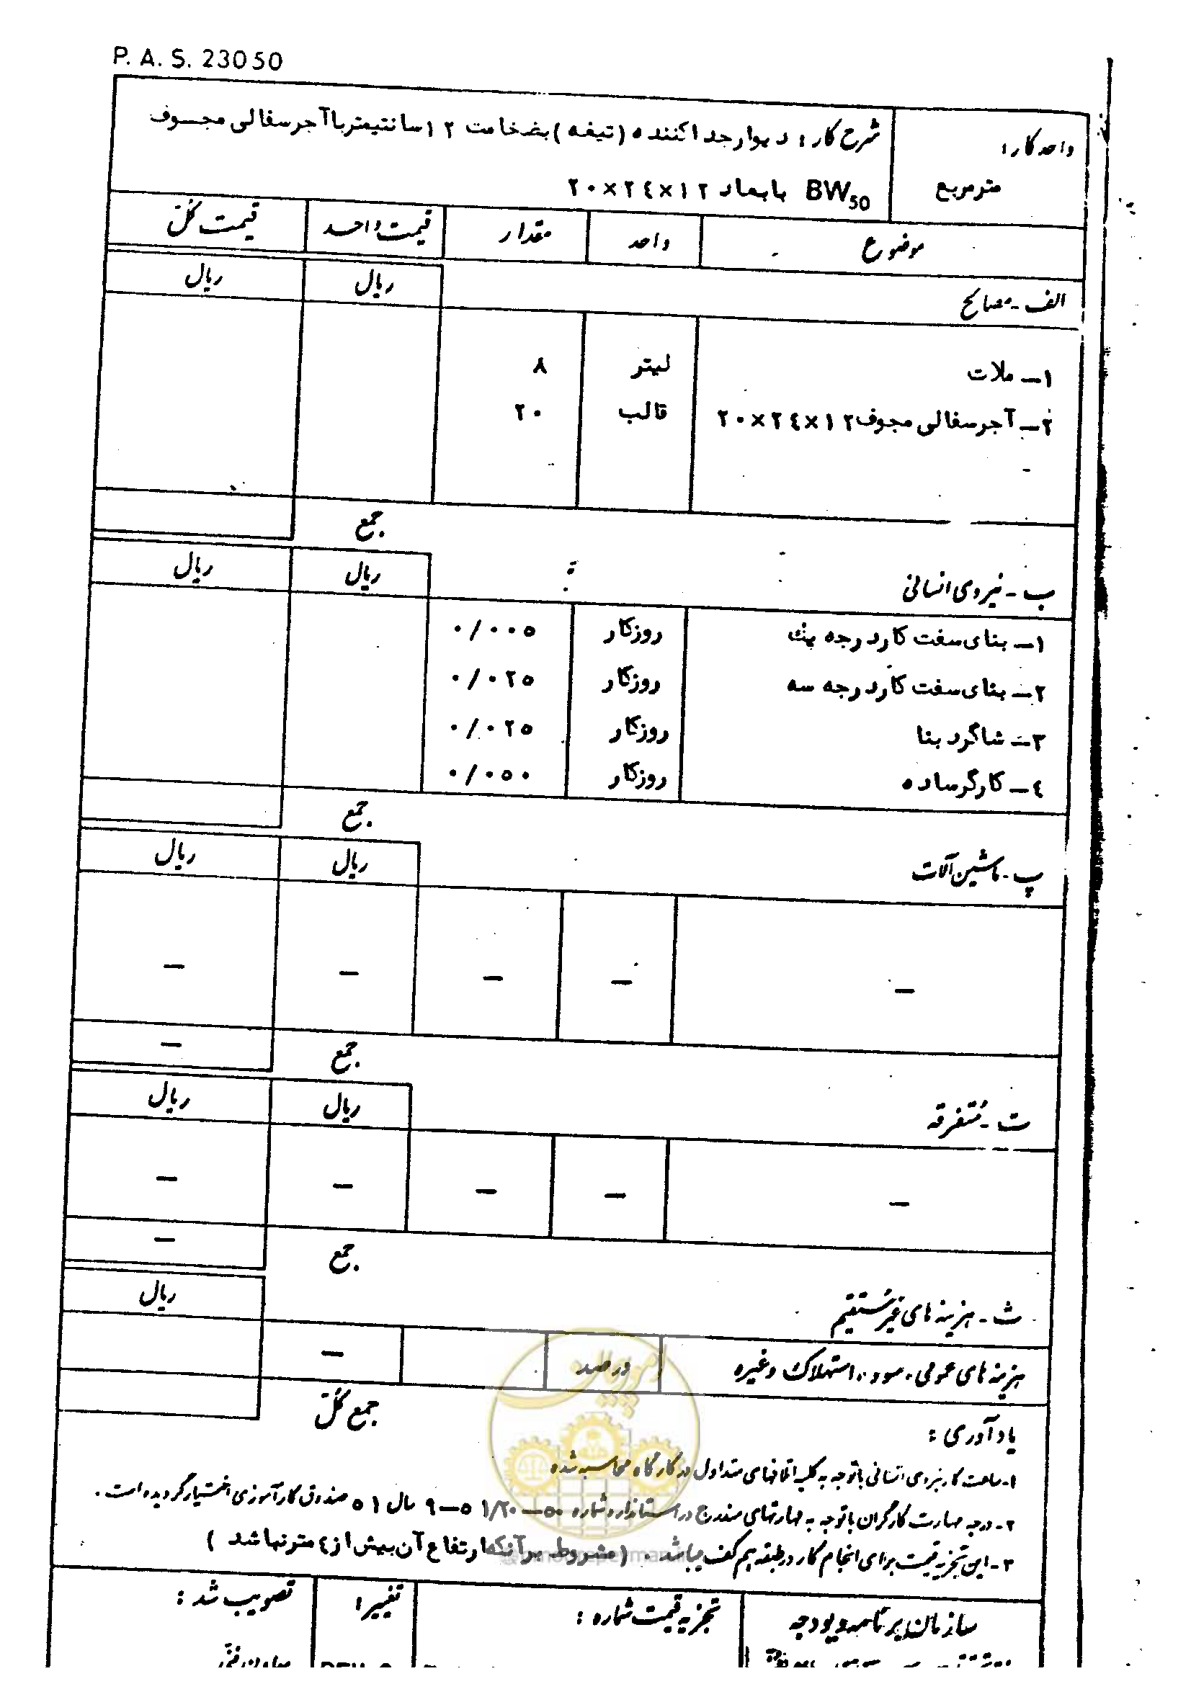 P. A. S. 23050
واحد کار :
مترمربع
شرح کار : دیوار جدا کننده (تیغه) بضخامت ۱۲ سانتیمتر با آجر سفالی مجوف
BW50 با بعاد ۱۲×۲۴×۲۰
موضوع واحد مقدار قیمت واحد قیمت کل
الف - مصالح ریال ریال
۱- ملات لیتر ۸
۲- آجر سفالی مجوف ۱۲×۲۴×۲۰ قالب ۲۰
جمع
ب - نیروی انسانی ریال ریال
۱- بنای سفت کار درجه یک روزکار ۰/۰۰۵
۲- بنای سفت کار درجه سه روزکار ۰/۰۲۵
۳- شاگرد بنا روزکار ۰/۰۲۵
۴- کارگر ساده روزکار ۰/۰۵۰
جمع
پ - ماشین آلات ریال ریال
— — — — —
جمع —
ت - متفرقه ریال ریال
— — — — —
جمع —
ث - هزینه های غیر مستقیم ریال
هزینه های عمومی، سود، استهلاک وغیره درصد —
جمع کل
یادآوری :
۱- ساعت کار نیروی انسانی باتوجه به کلیه اتلافهای متداول در کارگاه محاسبه شده
۲- درجه مهارت کارگران باتوجه به مهارتهای مندرج در استاندارد شماره ۵۰-۱/۲۰ ۵-۹ سال ۵۱ صندوق کارآموزی اختیار گردیده است .
۳- این تجزیه قیمت برای انجام کار در طبقه هم کف میباشد . (مشروط بر آنکه ارتفاع آن بیش از ۴ متر نباشد )
سازمان برنامه و بودجه تجزیه قیمت شماره : تغییر : تصویب شد :
معاون فنی